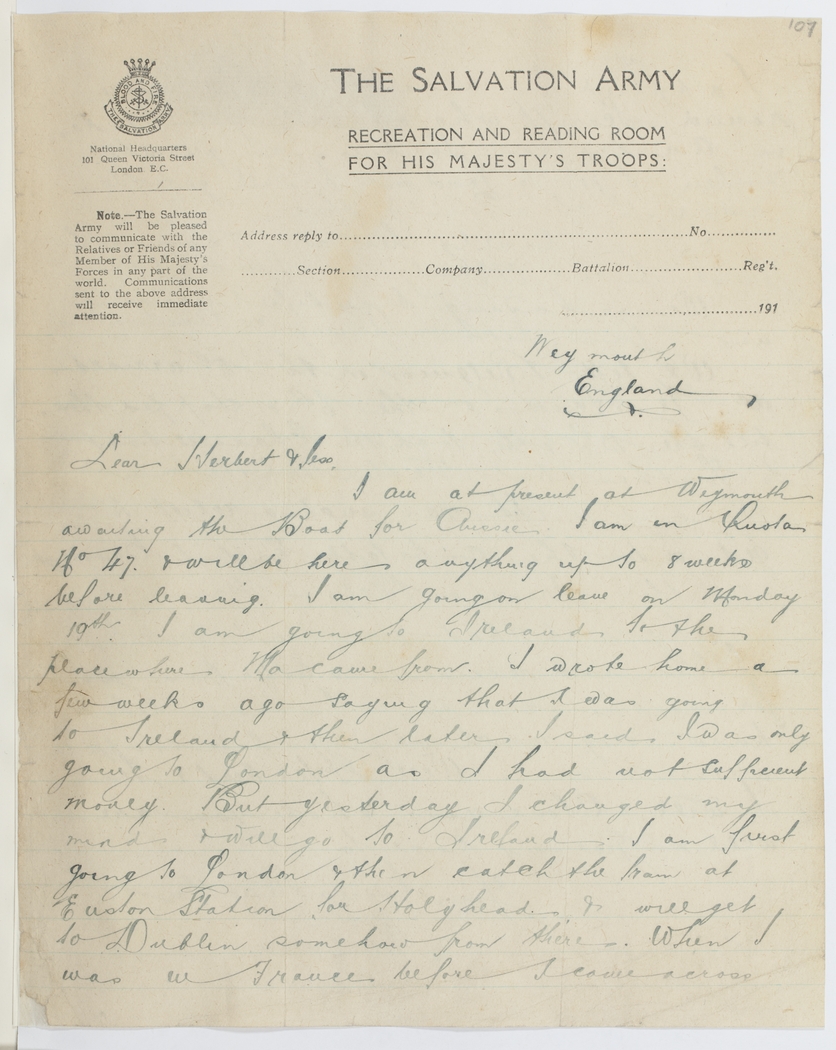 107
THE SALVATION ARMY
RECREATION AND READING ROOM
FOR HIS MAJESTY'S TROOPS:
BLOOD AND FIRE
THE SALVATION ARMY
National Headquarters
101 Queen Victoria Street
London E.C.
Note.—The Salvation
Army will be pleased
to communicate with the
Relatives or Friends of any
Member of His Majesty's
Forces in any part of the
world. Communications
sent to the above address
will receive immediate
attention.
Address reply to..............................No..............
..............Section..............Company..............Battalion..............Reg't.
..............................191
Weymouth
England
Dear Herbert & Jess,
I am at present at Weymouth
awaiting the Boat for Aussie. I am in Quota
No 47. & will be here anything up to 8 weeks
before leaving. I am going on leave on Monday
19th. I am going to Ireland to the
place where Ma came from. I wrote home a
few weeks ago saying that I was going
to Ireland & then later I said I was only
going to London as I had not sufficient
money. But yesterday I changed my
mind & will go to Ireland. I am first
going to London & then catch the train at
Euston Station for Holyhead. & will get
to Dublin somehow from there. When I
was in France before I came across